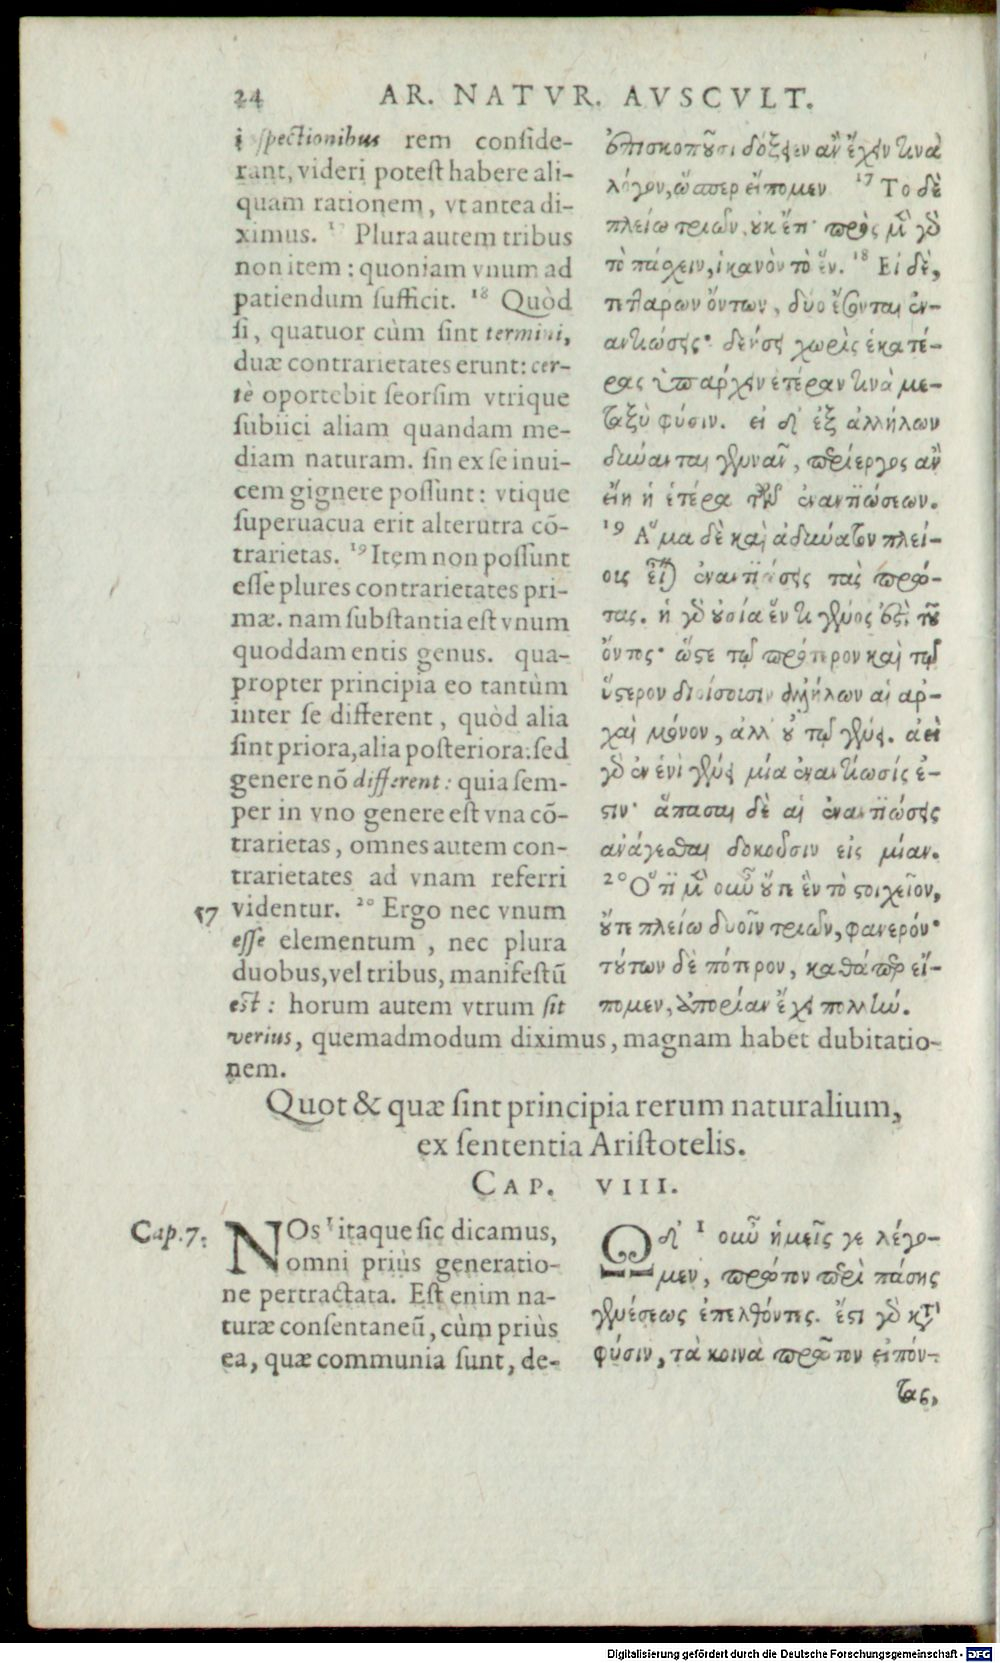 24 AR. NATVR. AVSCVLT.
ispectionibus rem conside-
rant, videri potest habere ali-
quam rationem, vt antea di-
ximus. 17 Plura autem tribus
non item: quoniam vnum ad
patiendum sufficit. 18 Quòd
si, quatuor cùm sint termini,
duæ contrarietates erunt: cer-
tè oportebit seorsim vtrique
subiici aliam quandam me-
diam naturam. sin ex se inui-
cem gignere possunt: vtique
superuacua erit alterutra cō-
trarietas. 19 Item non possunt
esse plures contrarietates pri-
mæ. nam substantia est vnum
quoddam entis genus. qua-
propter principia eo tantùm
inter se different, quòd alia
sint priora, alia posteriora: sed
genere nō different: quia sem-
per in vno genere est vna cō-
trarietas, omnes autem con-
trarietates ad vnam referri
57 videntur. 20 Ergo nec vnum
esse elementum, nec plura
duobus, vel tribus, manifestū
est: horum autem vtrum sit
verius, quemadmodum diximus, magnam habet dubitatio-
nem.
ἐπισκοποῦσι δόξειεν ἂν ἔχειν τινὰ
λόγον, ὥσπερ εἴπομεν 17 Το δὲ
πλείω τριῶν, οὐκ ἔτι· πρὸς μὲν γὸ
τὸ πάσχειν, ἱκανὸν τὸ ἕν. 18 Εἰ δὲ,
τεττάρων ὄντων, δύο ἔσονται ἐν-
αντιώσεις· δεήσει χωρὶς ἑκατέ-
ρας ὑπάρχειν ἑτέραν τινὰ με-
ταξὺ φύσιν. εἰ δ' ἐξ ἀλλήλων
δύνανται γεννᾶν, περίεργος ἂν
εἴη ἡ ἑτέρα τῶν ἐναντιώσεων.
19 Αμα δὲ καὶ ἀδύνατον πλεί-
ους εἶναι ἐναντιώσεις τὰς πρώ-
τας. ἡ γὸ οὐσία ἕν τι γένος ἐστὶ τοῦ
ὄντος· ὥστε τῷ πρότερον καὶ τῷ
ὕστερον διοίσουσιν ἀλλήλων αἱ ἀρ-
χαὶ μόνον, ἀλλ' οὐ τῷ γένει. ἀεὶ
γὸ ἐν ἑνὶ γένει μία ἐναντίωσίς ἐ-
στιν· ἅπασαι δὲ αἱ ἐναντιώσεις
ἀνάγεσθαι δοκοῦσιν εἰς μίαν.
20 Οτι μὲν οὖν οὔτε ἓν τὸ στοιχεῖον,
οὔτε πλείω δυοῖν τριῶν, φανερόν·
τούτων δὲ πότερον, καθάπερ εἴ-
πομεν, ἀπορίαν ἔχει πολλήν.
Quot & quæ sint principia rerum naturalium,
ex sententia Aristotelis.
CAP. VIII.
Cap. 7. NOs 1 itaque sic dicamus,
omni priùs generatio-
ne pertractata. Est enim na-
turæ consentaneū, cùm priùs
ea, quæ communia sunt, de-
Ωδ' 1 οὖν ἡμεῖς γε λέγο-
μεν, πρῶτον περὶ πάσης
γενέσεως ἐπελθόντες. ἔστι γὸ κτ'
φύσιν, τὰ κοινὰ πρῶτον εἰπόν-
τας,
Digitalisierung gefördert durch die Deutsche Forschungsgemeinschaft - DFG